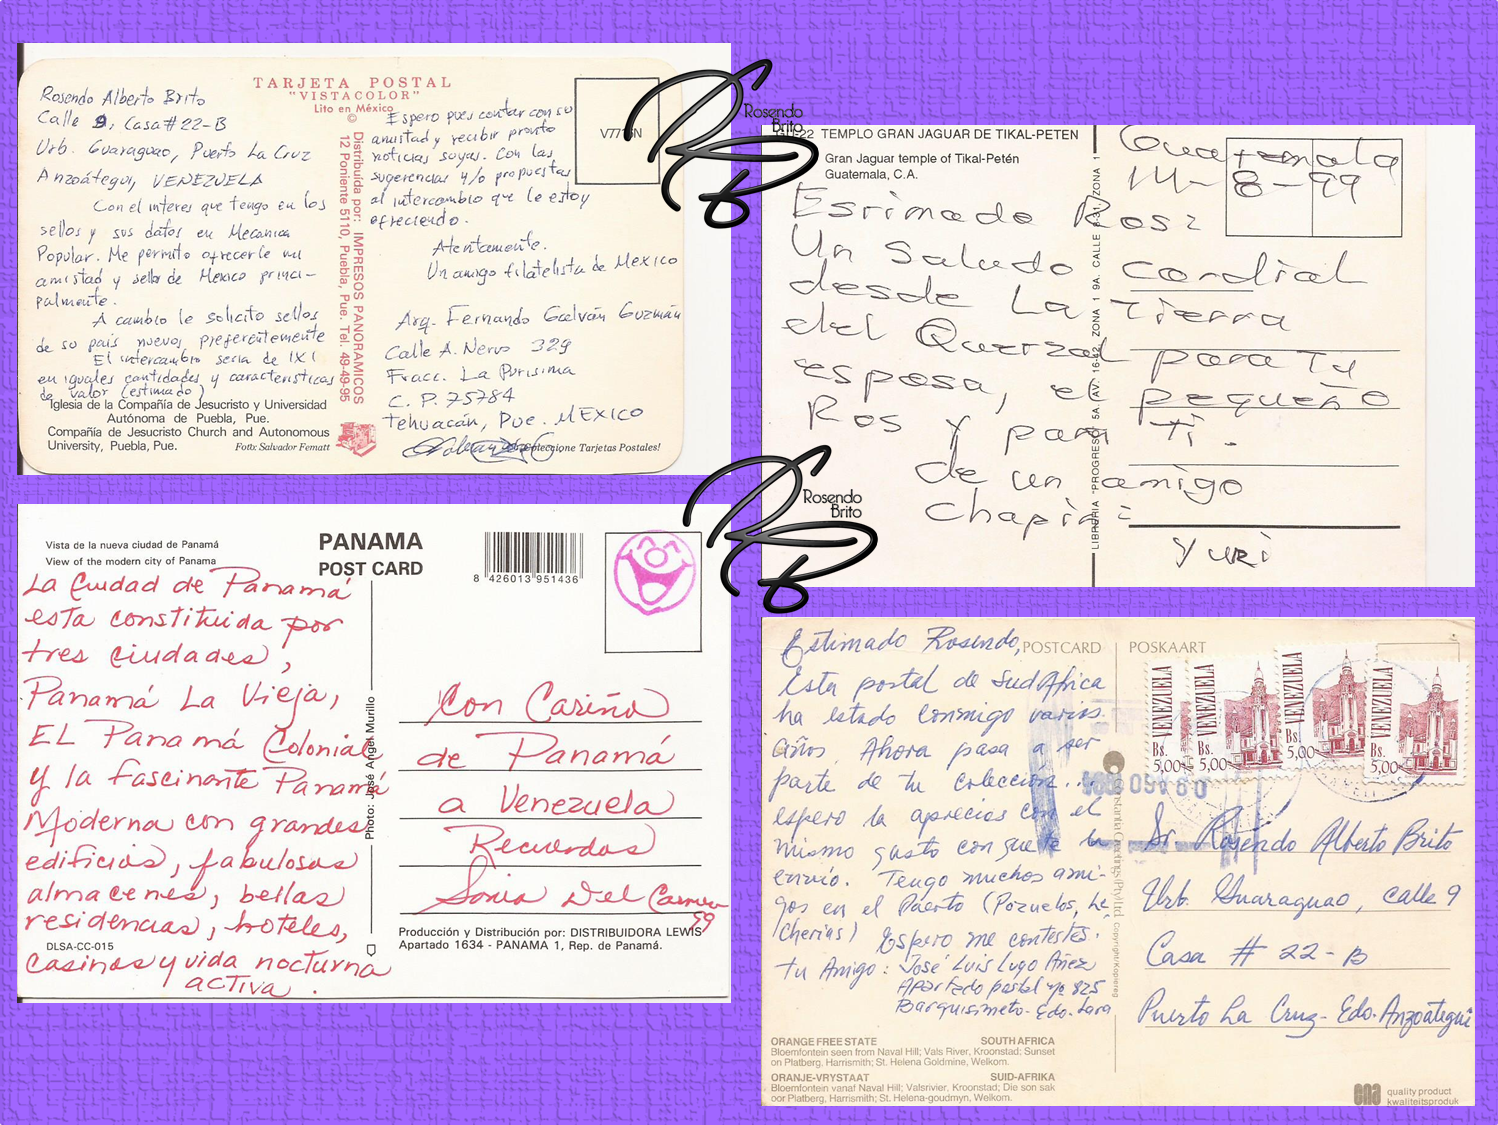 TARJETA POSTAL
"VISTACOLOR"
Lito en México
©
Distribuida por: IMPRESOS PANORAMICOS
12 Poniente 5110, Puebla, Pue. Tel. 49-49-95
Rosendo Alberto Brito
Calle 9, Casa # 22-B
Urb. Guaraguao, Puerto La Cruz
Anzoátegui, VENEZUELA
Con el interes que tengo en los
sellos y sus datos en Mecanica
Popular. Me permito ofrecerle mi
amistad y sellos de Mexico princi-
palmente.
A cambio le solicito sellos
de su país nuevos, preferentemente
El intercambio seria de 1X1
en iguales cantidades y caracteristicas
de valor (estimado)
Iglesia de la Compañía de Jesucristo y Universidad
Autónoma de Puebla, Pue.
Compañía de Jesucristo Church and Autonomous
University, Puebla, Pue.
Foto: Salvador Fematt
Espero pues contar con su
amistad y recibir pronto
noticias suyas. Con las
sugerencias y/o propuestas
al intercambio que le estoy
ofreciendo.
Atentamente.
Un amigo filatelista de Mexico
Arq. Fernando Galván Guzmán
Calle A. Nervo 329
Fracc. La Purisima
C.P. 75784
Tehuacán, Pue. MEXICO
Coleccione Tarjetas Postales!
Rosendo
Brito
-22 TEMPLO GRAN JAGUAR DE TIKAL-PETEN
Gran Jaguar temple of Tikal-Petén
Guatemala, C.A.
Guatemala
14-8-99
Estimado Ros:
Un Saludo cordial
desde La Tierra
del Quetzal para Tu
esposa, el pequeño
Ros y para Ti.
de un amigo
chapin:
Yuri
LIBRERIA "PROGRESO" 5A. AV. 16-42, ZONA 1 9A. CALLE ZONA 1
Rosendo
Brito
Vista de la nueva ciudad de Panamá
View of the modern city of Panama
PANAMA
POST CARD
8 426013 951436
La Ciudad de Panamá
esta constituida por
tres ciudades,
Panamá La Vieja,
EL Panamá Colonial
y la fascinante Panamá
Moderna con grandes
edificios, fabulosos
almacenes, bellas
residencias, hoteles,
DLSA-CC-015
casinos y vida nocturna
activa.
Photo: José Angel Murillo
Con Cariño
de Panamá
a Venezuela
Recuerdos
Sonia Del Carmen
99
Producción y Distribución por: DISTRIBUIDORA LEWIS
Apartado 1634 - PANAMA 1, Rep. de Panamá.
POSTCARD
POSKAART
Estimado Rosendo,
Esta postal de Sud Africa
ha estado conmigo varios
años. Ahora pasa a ser
parte de tu colección...
espero la aprecies con el
mismo gusto con que te la
envío. Tengo muchos ami-
gos en el Puerto (Pozuelos, Le
cherías) Espero me contestes.
tu Amigo: José Luis Lugo Añez
Apartado postal Nº 825
Barquisimeto - Edo. Lara
VENEZUELA
Bs.
5,00
VENEZUELA
Bs.
5,00
VENEZUELA
Bs.
5,00
VENEZUELA
Bs.
5,00
Sr. Rosendo Alberto Brito
Urb. Guaraguao, calle 9
Casa # 22-B
Puerto La Cruz - Edo. Anzoátegui
ORANGE FREE STATE SOUTH AFRICA
Bloemfontein seen from Naval Hill; Vals River, Kroonstad; Sunset
on Platberg, Harrismith; St. Helena Goldmine, Welkom.
ORANJE-VRYSTAAT SUID-AFRIKA
Bloemfontein vanaf Naval Hill; Valsrivier, Kroonstad; Die son sak
oor Platberg, Harrismith; St. Helena-goudmyn, Welkom.
quality product
kwaliteitsproduk